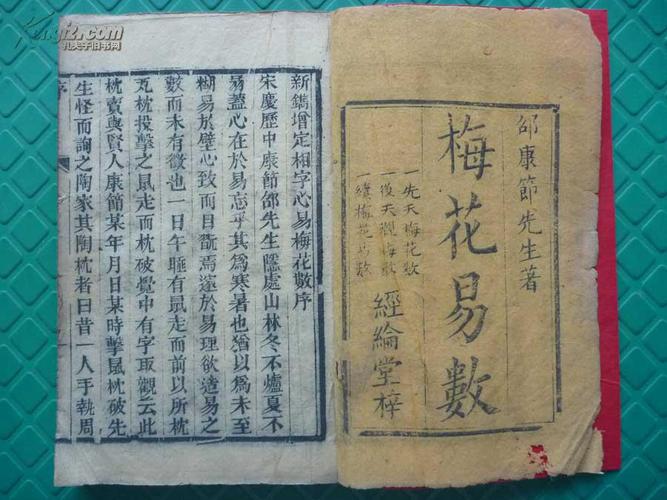 邵康節先生著
梅花易數
一先天梅花數
一後天觀梅數
一續梅花易數
經綸堂梓
新鐫增定相字心易梅花數序
宋慶歷中康節邵先生隱處山林冬不爐夏不
易蓋心在於易忘乎其為寒暑也猶以為未至
糊易於壁心致而目翫焉邃於易理欲造易之
數而未有徵也一日午睡有鼠走而前以所枕
瓦枕投擊之鼠走而枕破覺中有字取觀云此
枕賣與賢人康節某年月日某時擊鼠枕破先
生怪而詢之陶家其陶枕者曰昔一人手執周
序